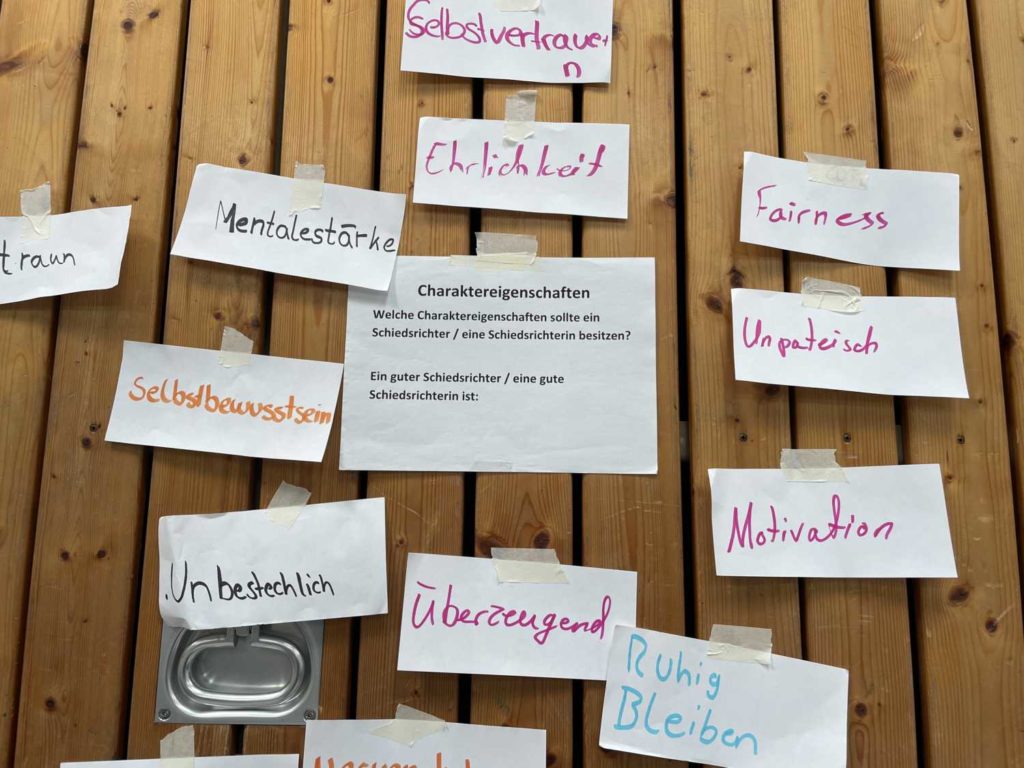 Selbstvertraue
n
Ehrlichkeit
Fairness
Mentalestärke
traun
Charaktereigenschaften
Welche Charaktereigenschaften sollte ein
Schiedsrichter / eine Schiedsrichterin besitzen?
Ein guter Schiedsrichter / eine gute
Schiedsrichterin ist:
Unpateisch
Selbstbewusstsein
Motivation
Unbestechlich
Überzeugend
Ruhig
Bleiben